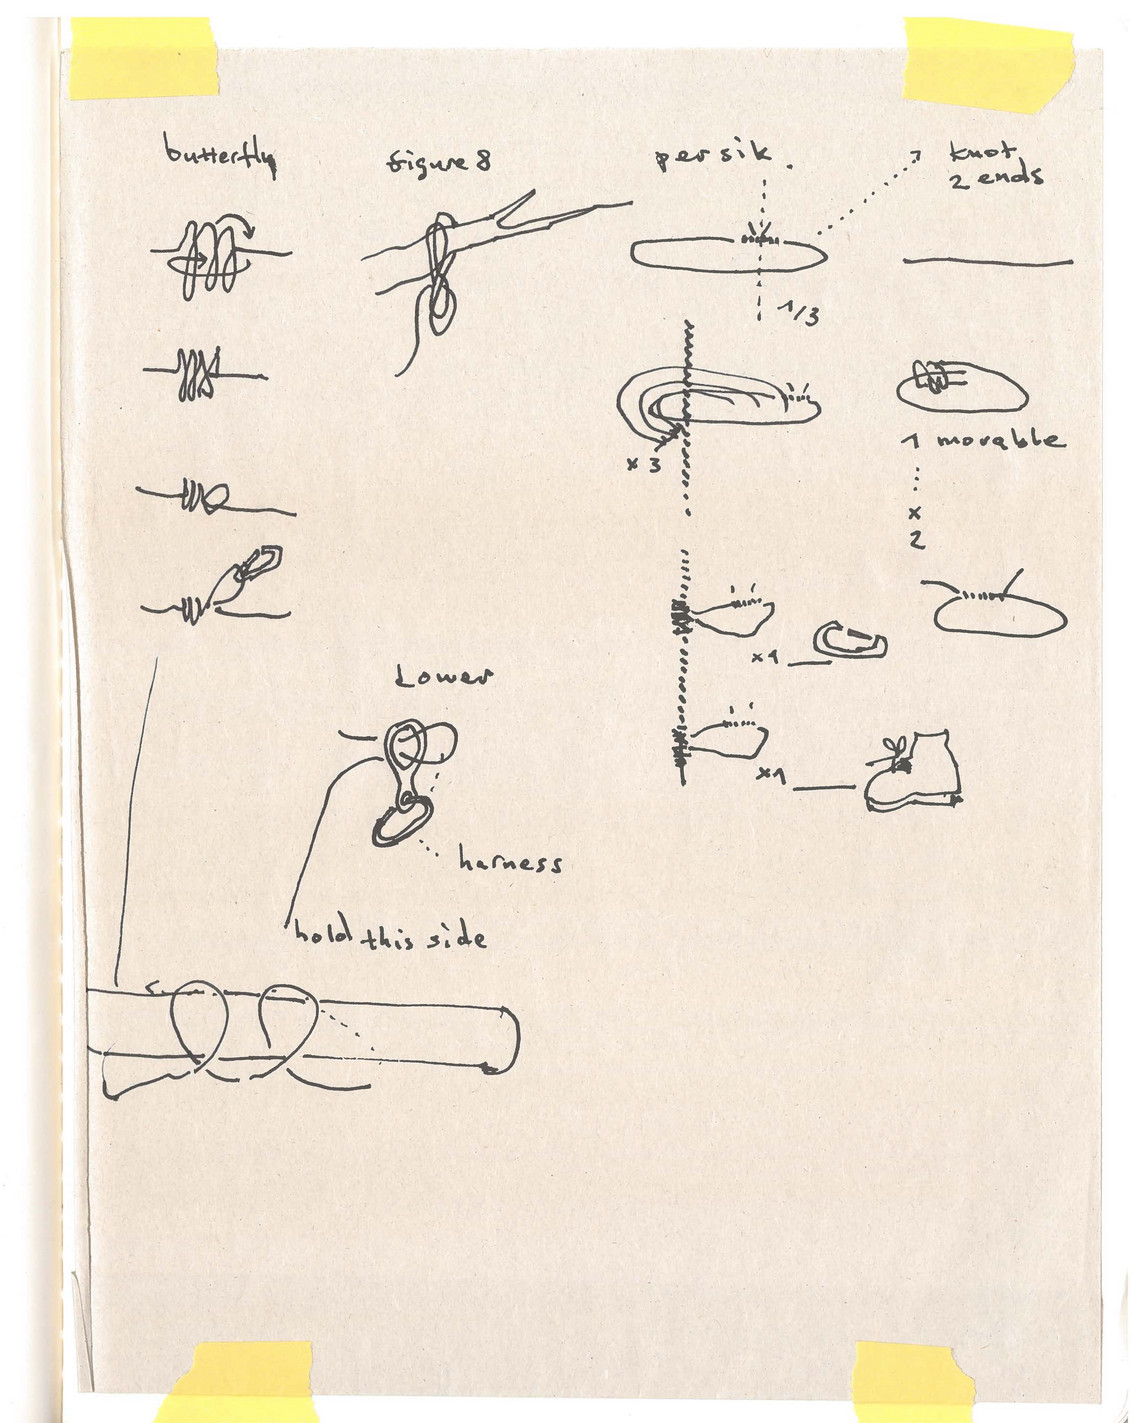 butterfly
figure 8
persik.
knot
2 ends
1/3
x 3
1 movable
x
2
x1
Lower
x1
harness
hold this side